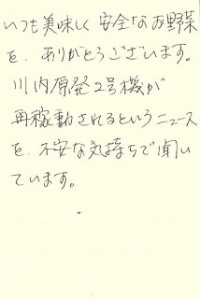 いつも美味しく安全なお野菜
を、ありがとうございます。
川内原発2号機が
再稼動されるというニュース
を、不安な気持ちで聞い
ています。